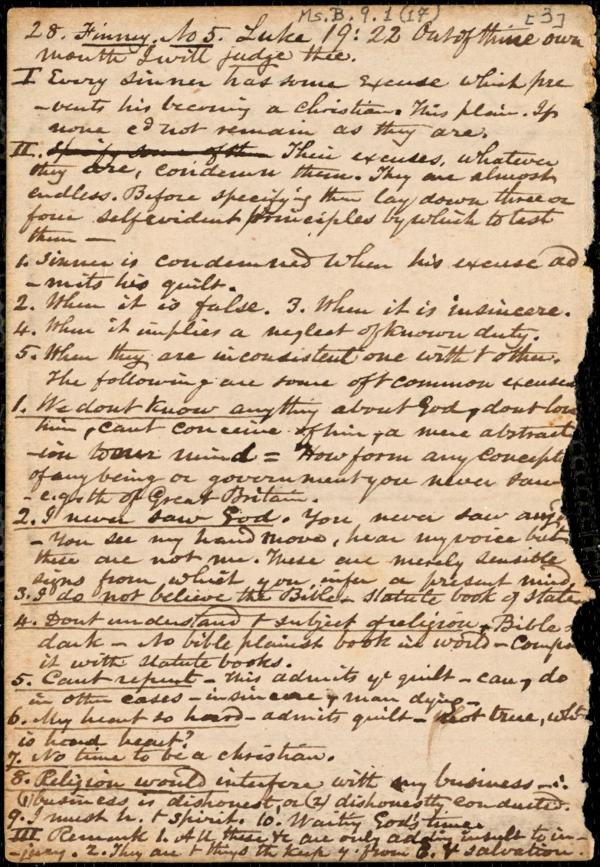 Ms. B. 9. 1 (17) [3]
28. Finney. No 5. Luke 19: 22 Out of thine own
mouth I will judge thee.
I Every sinner has some excuse which pre
-vents his becoming a christian. This plain. If
none cd not remain as they are.
II. Specify some of them Their excuses, whatever
they are, condemn them. They are almost
endless. Before specifying then lay down three or
four selfevident principles by which to test
them —
1. Sinner is condemned when his excuse ad
-mits his guilt.
2. When it is false. 3. When it is insincere.
4. When it implies a neglect of known duty.
5. When they are inconsistent one with t other.
The following are some of t common excuses
1. We dont know anything about God, dont love
him, cant conceive of him, a mere abstract
-ion to our mind = How form any concept
of any being or government you never saw
- e.g. th of Great Britain.
2. I never saw God. You never saw any
- You see my hand move, hear my voice but
these are not me. These are merely sensible
signs from which you infer a present mind,
3. I do not believe the Bible - statute book of state
4. Dont understand t subject of religion, Bible
dark - No bible plainest book in world - Compa
it with statute books.
5. Cant repent - This admits yr guilt - can, do
in other cases - insincere, man dying -
6. My heart so hard - admits guilt - Not true, wht
is hard heart?
7. No time to be a christian.
8. Religion would interfere with my business -
(1) business is dishonest, or (2) dishonestly conducted.
9. I must h. t spirit. 10. Waiting God's time.
III Remark 1. All these &c are only addin insult to in-
jury. 2. They are t thgs th keep y. from salvation.